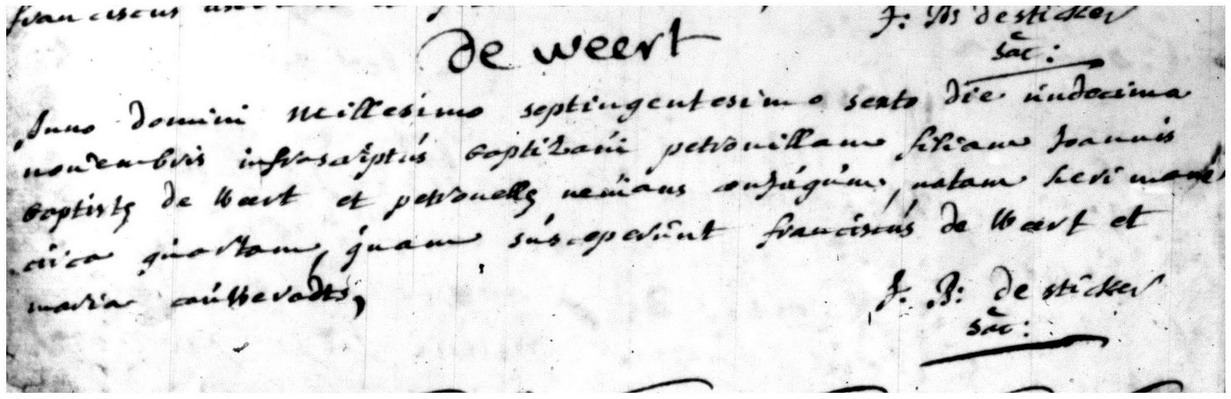 franciscus
J: B: de sticker
de weert
sac:
Anno domini millesimo septingentesimo sexto die undecima
novembris infrascriptus baptizavi petronillam filiam Joannis
baptistę de Weert et petronellę nemans conjugum, natam heri mane
circa quartam, quam susceperunt franciscus de Weert et
maria
J. B: de sticker
sac: